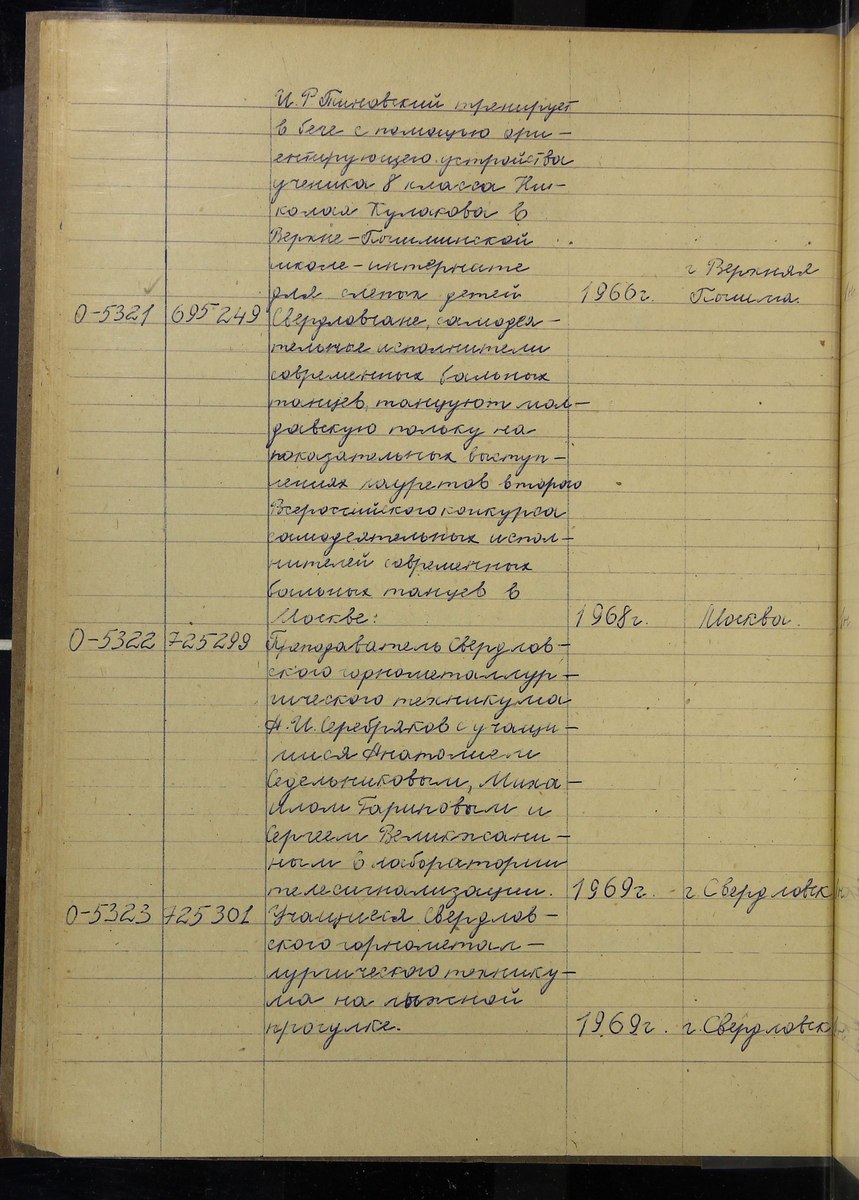 И. Р. Тиновский тренирует
в беге с помощью ори-
ентирующего устройства
ученика 8 класса Ни-
колая Кулакова в
Верхне-Пышминской
школе-интернате г Верхняя
для слепых детей 1966г. Пышма.
0-5321 695249 Свердловчане, самодея-
тельные исполнители
современных бальных
танцев, танцуют мол-
давскую польку на
показательных выступ-
лениях лауретов второго
Всероссийского конкурса
самодеятельных испол-
нителей современных
бальных танцев в
Москве: 1968г. Москва.
0-5322 725299 Преподаватель Свердлов-
ского горнометаллур-
гического техникума
А. И. Серебряков с учащи-
мися Анатолием
Седельниковым, Миха-
илом Гариновым и
Сергеем Великжани-
ным в лаборатории
телесигнализации. 1969г. г Свердловск
0-5323 725301 Учащиеся Свердлов-
ского горнометал-
лургического технику-
ма на лыжной
прогулке. 1969г. г. Свердловск